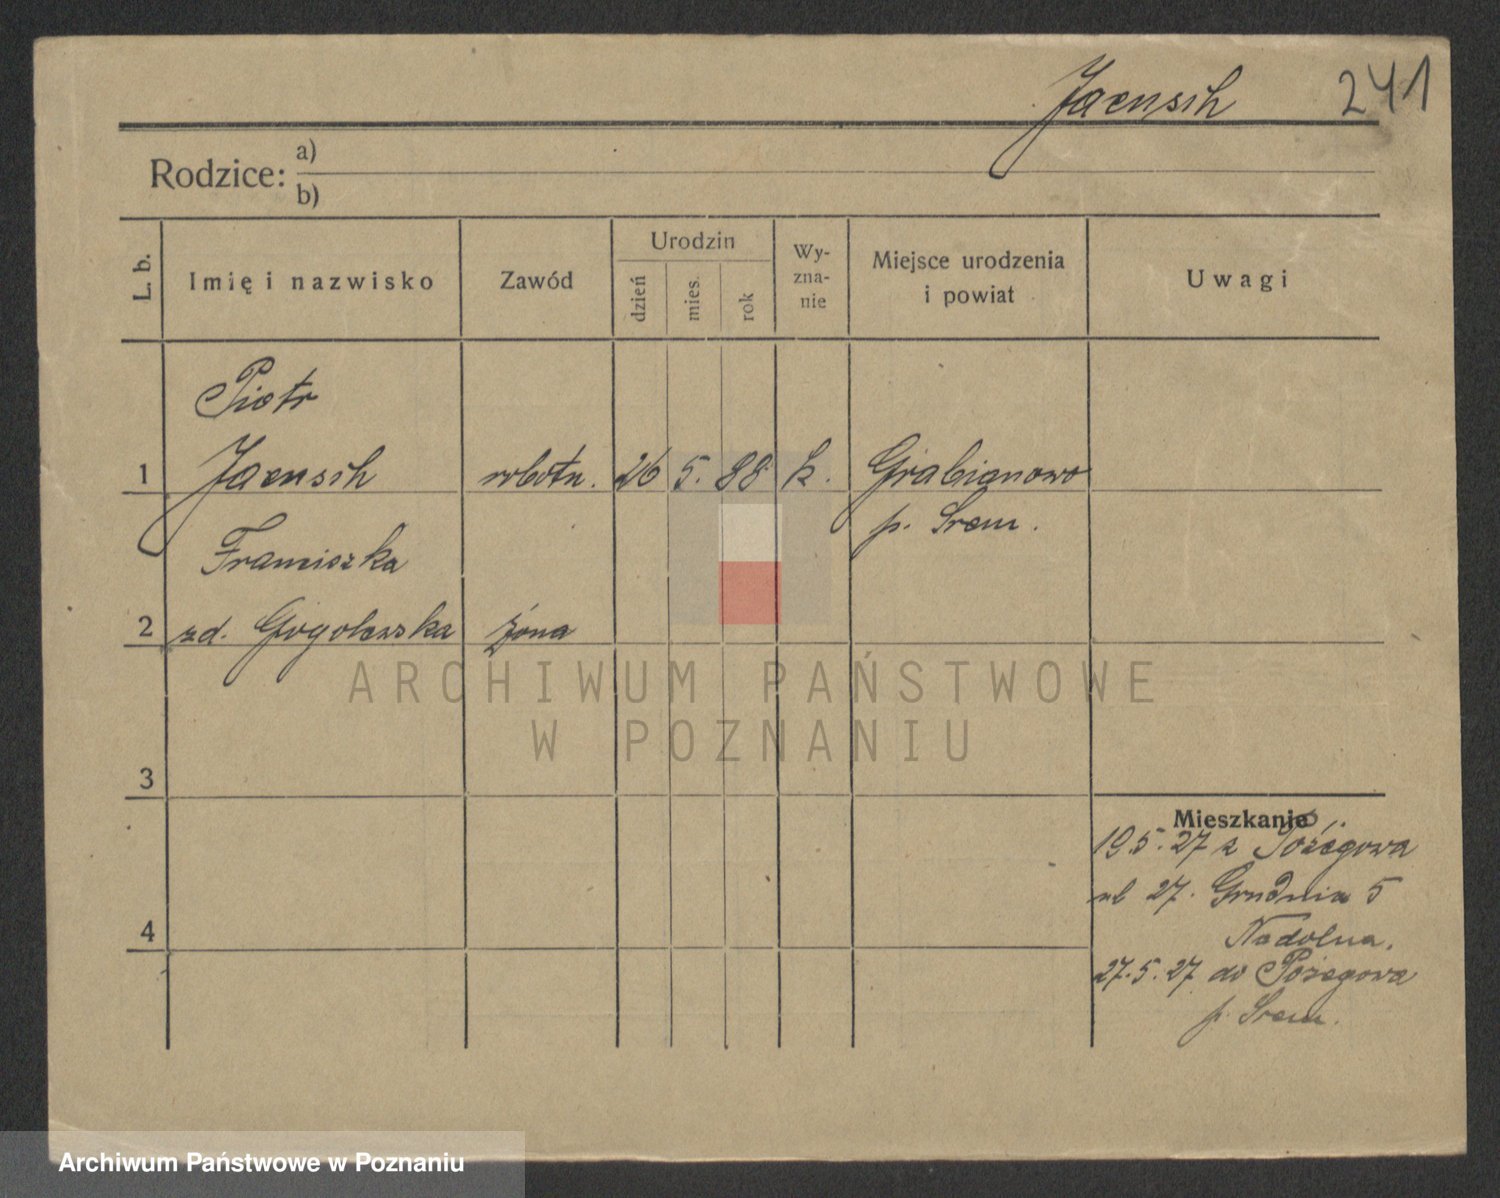 Jaensch 241
Rodzice: a)
b)
L. b. Imię i nazwisko Zawód Urodzin dzień mies. rok Wyznanie Miejsce urodzenia i powiat Uwagi
Piotr
1 Jaensch robotn. 26 5. 88 k. Grabianowo
p. Śrem.
Franciszka
2 zd. Gogolewska żona
3
Mieszkanie
19.5.27 z Pożegowa
ul 27. Grudnia 5
4 Nadolna.
27.5.27 do Pożegowa
p. Śrem.
ARCHIWUM PAŃSTWOWE
W POZNANIU
Archiwum Państwowe w Poznaniu